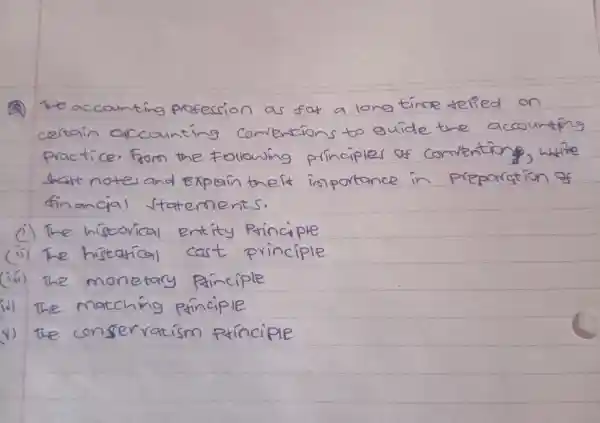 The accounting profession as for a long time relied on
certain accounting conventions to guide the accounting
practice. From the following principles of conventions, write
short notes and explain their importance in preparation of
financial statements.
(i) The historical entity Principle
(ii) The historical cost principle
(iii) The monetary Principle
iv) The matching principle
v) The conservatism principle